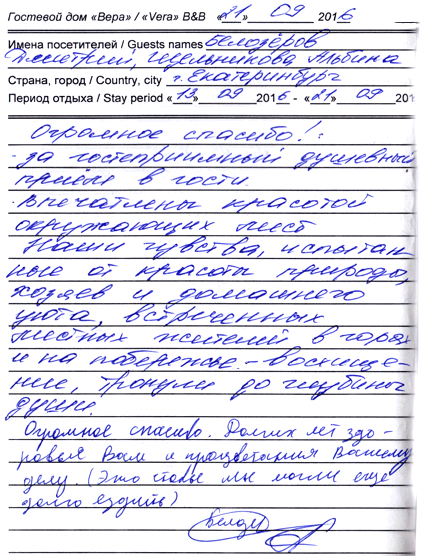 Гостевой дом «Вера» / «Vera» B&B «21» 09 2016
Имена посетителей / Guests names Белодёров
Дмитрий, Щельникова Альбина
Страна, город / Country, city г. Екатеринбург
Период отдыха / Stay period «13» 09 2016 - «21» 09 201
Огромное спасибо!:
- за гостеприимный душевный
приём в гости.
- впечатлены красотой
окружающих мест
Наши чувства, испытан-
ные от красоты природы,
хозяев и домашнего
уюта, встреченных
местных жителей в горах
и на побережье - восхище-
ние, тронули до глубины
души.
Огромное спасибо. Долгих лет здо-
ровья Вам и процветания Вашему
делу. (Это чтобы мы могли еще
долго ездить)